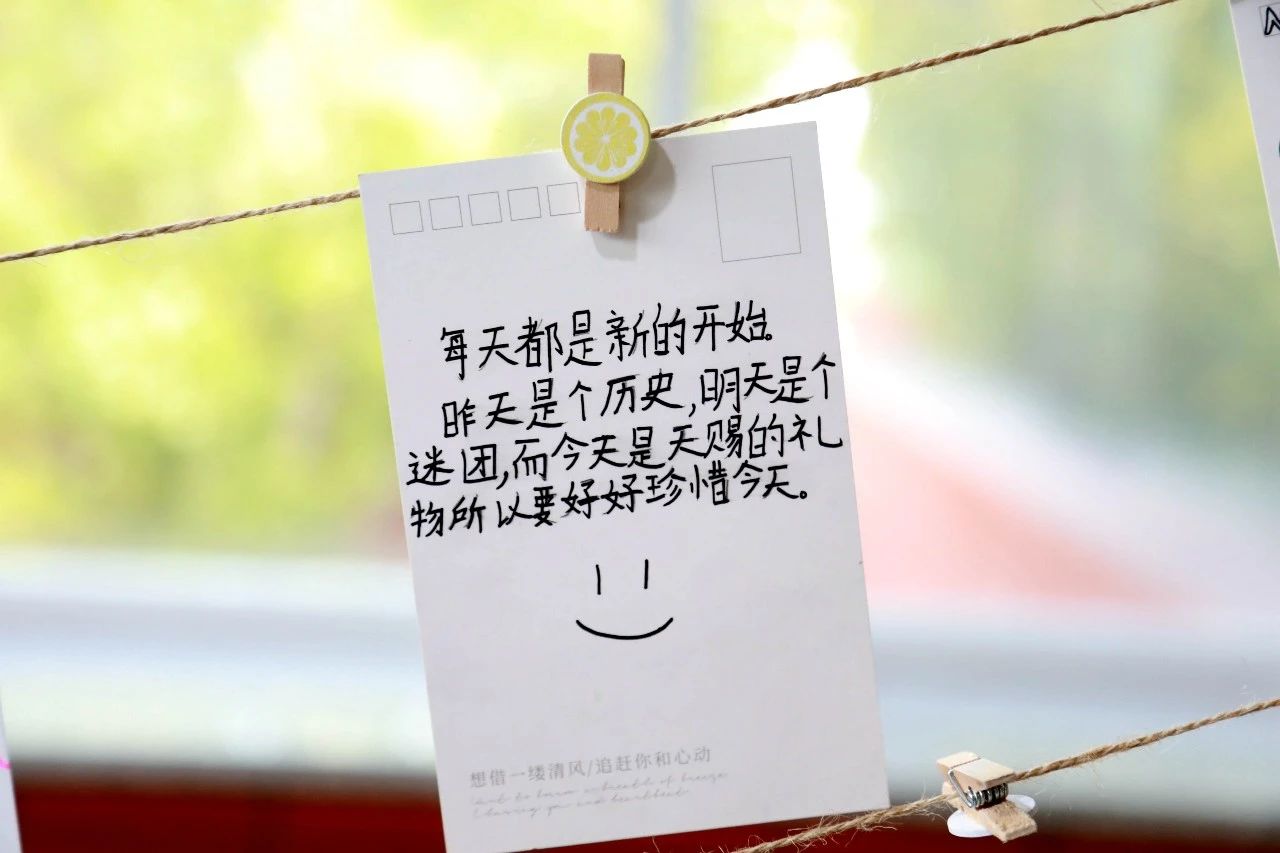 每天都是新的开始。
昨天是个历史,明天是个
迷团,而今天是天赐的礼
物所以要好好珍惜今天。
想借一缕清风/追赶你和心动